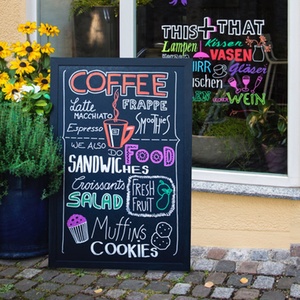 THIS+THAT
Lampen
Kissen
VASEN
Gläser
WEIN
COFFEE
Latte
MACCHIATO
FRAPPE
Espresso
Smoothies
WE ALSO DO FOOD
SANDWICHES
Croissants
SALAD
FRESH
FRUIT
Muffins
COOKIES